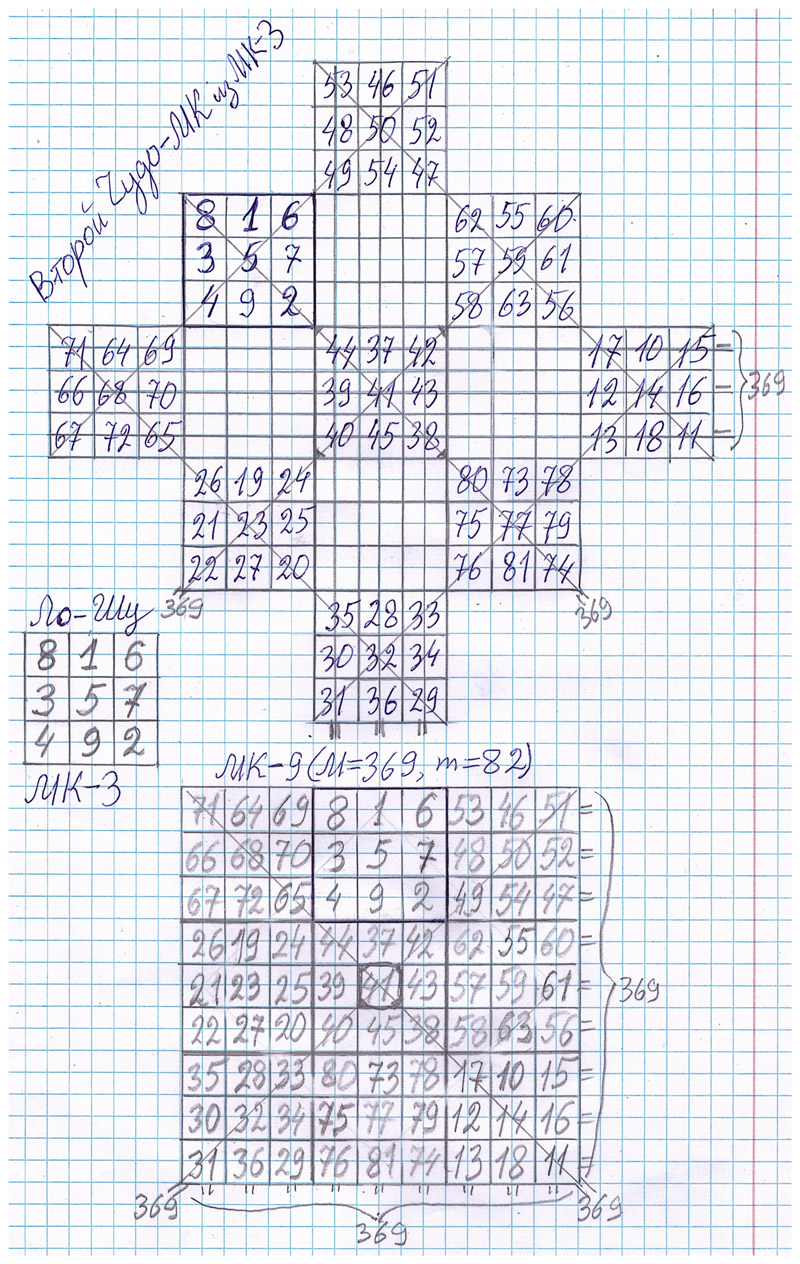 Второй Чудо-МК из МК-3
53 46 51
48 50 52
49 54 47
8 1 6 62 55 60
3 5 7 57 59 61
4 9 2 58 63 56
71 64 69 44 37 42 17 10 15 =
66 68 70 39 41 43 12 14 16 = 369
67 72 65 40 45 38 13 18 11 =
26 19 24 80 73 78
21 23 25 75 77 79
22 27 20 76 81 74
369 369
35 28 33
30 32 34
31 36 29
Ло-Шу
8 1 6
3 5 7
4 9 2
МК-3
МК-9 (М=369, m=82)
71 64 69 8 1 6 53 46 51 =
66 68 70 3 5 7 48 50 52 =
67 72 65 4 9 2 49 54 47 =
26 19 24 44 37 42 62 55 60 =
21 23 25 39 41 43 57 59 61 = 369
22 27 20 40 45 38 58 63 56 =
35 28 33 80 73 78 17 10 15 =
30 32 34 75 77 79 12 14 16 =
31 36 29 76 81 74 13 18 11 =
369 369 369